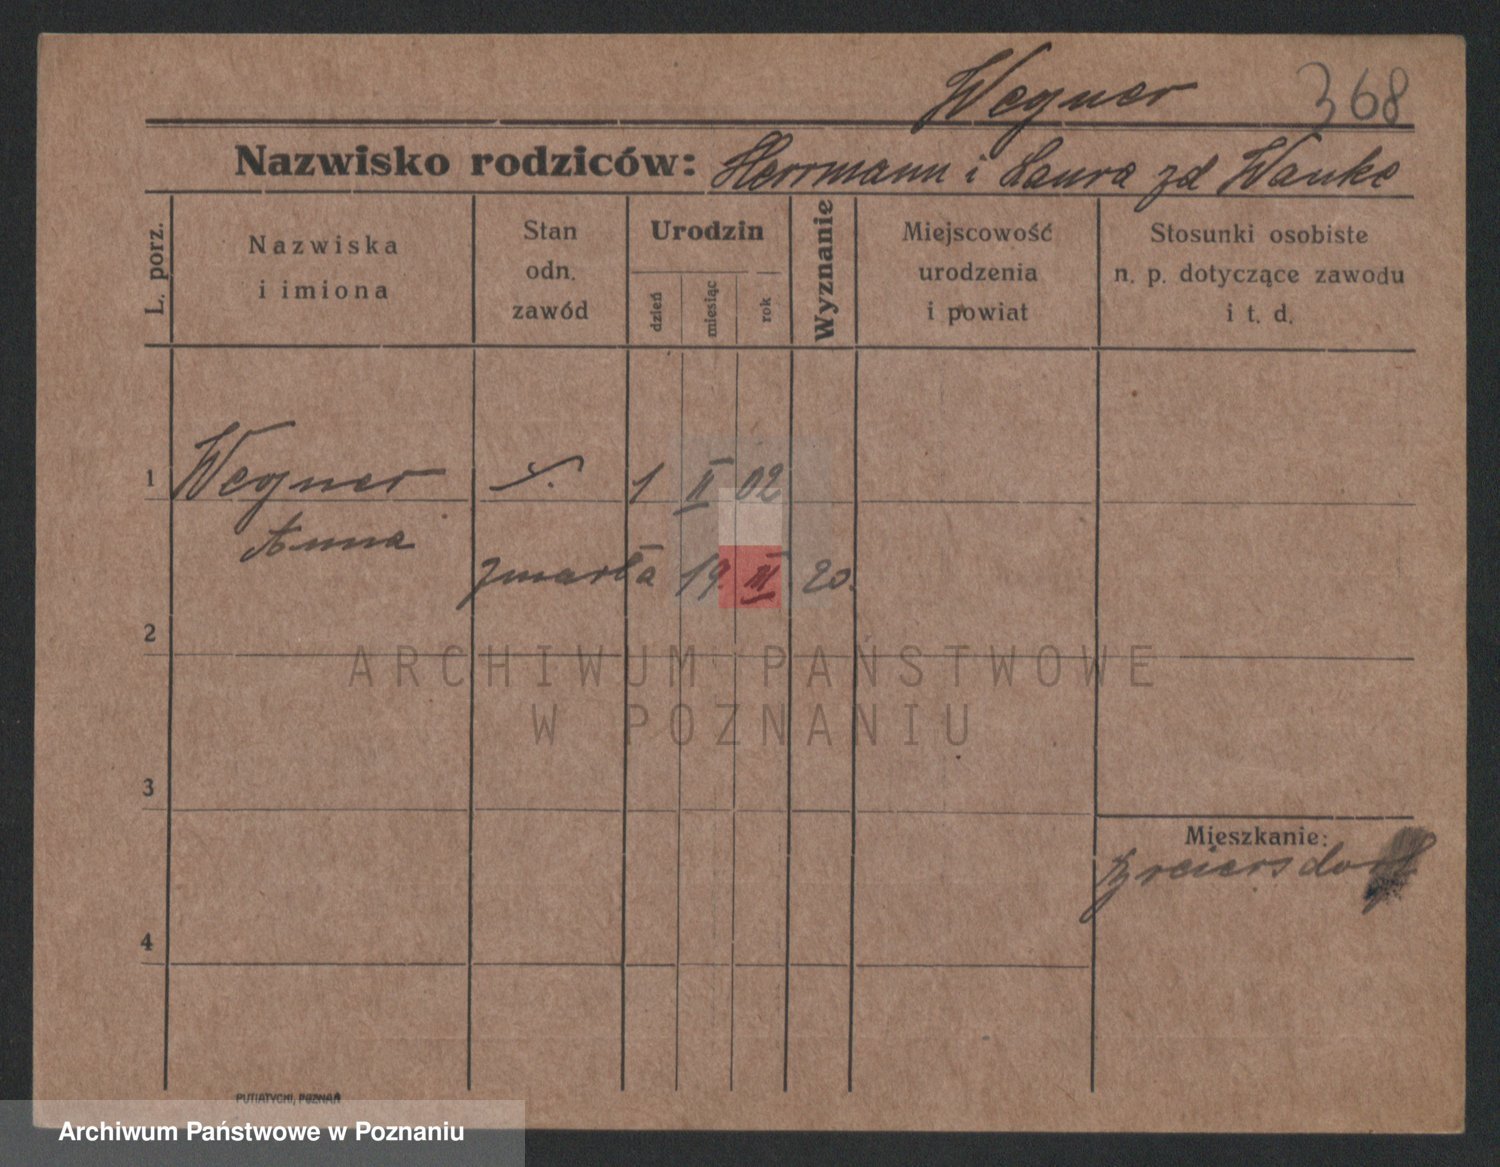 Wegner 368
Nazwisko rodziców: Herrmann i Laura zd Wanke
L. porz.
Nazwiska
i imiona
Stan
odn.
zawód
Urodzin
dzień
miesiąc
rok
Wyznanie
Miejscowość
urodzenia
i powiat
Stosunki osobiste
n. p. dotyczące zawodu
i t. d.
1 Wegner 1 II 02
Anna
zmarła 19. III 20.
2
ARCHIWUM PAŃSTWOWE
W POZNANIU
3
Mieszkanie:
4
PUTIATYCKI, POZNAŃ
Archiwum Państwowe w Poznaniu